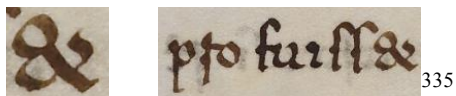 & p̱sto fuiss& 335